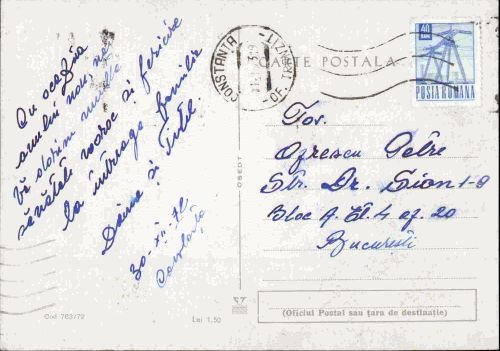 Cu ocazia
anului nou, noi
Vă dorim multă
sănătate noroc și fericire
la întreaga familie
Doina și Titel.
30-XII-72
Constanța
CONSTANȚA
OF.
CARTE POSTALA
40
BANI
POSTA ROMANA
Tov.
Oprescu Petre
Str. Dr. Sion 1-9
Bloc A. Et. 4 ap. 20
București
OSEDT
Cod 763/72
Lei 1,50
(Oficiul Postal sau țara de destinație)